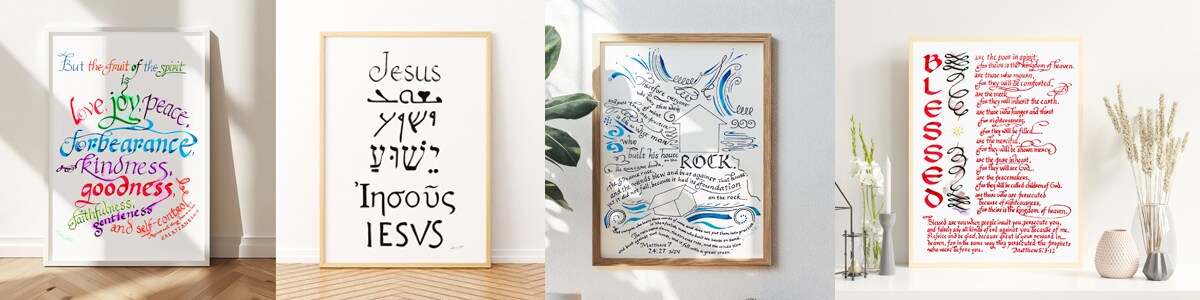 But the fruit of the spirit
is
love, joy, peace,
forbearance,
kindness,
goodness,
faithfulness,
gentleness
and self-control.
GALATIANS
Jesus
ישוע
יֵשׁוּעַ
Ἰησοῦς
IESVS
Therefore everyone
who hears these words
wise man
who
built his house on the ROCK.
The rain came down,
the streams rose,
and the winds blew and beat against that house;
yet it did not fall, because it had its foundation
on the rock
and does not put them into practice
with a great crash.
Matthew 7
24:27 NIV
BLESSED
are the poor in spirit,
for theirs is the kingdom of heaven.
are those who mourn,
for they will be comforted,
are the meek,
for they will inherit the earth.
are those who hunger and thirst
for righteousness,
for they will be filled
are the merciful,
for they will be shown mercy
are the pure in heart,
for they will see God
are the peacemakers,
for they will be called children of God.
are those who are persecuted
because of righteousness,
for theirs is the kingdom of heaven.
Blessed are you when people insult you, persecute you,
and falsely say all kinds of evil against you because of me.
Rejoice and be glad, because great is your reward in
heaven, for in the same way they persecuted the prophets
who were before you. Matthew 5:3-12